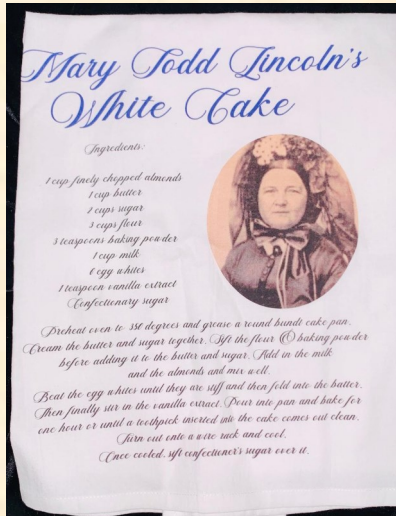 Mary Todd Lincoln's
White Cake
Ingredients:
1 cup finely chopped almonds
1 cup butter
2 cups sugar
3 cups flour
3 teaspoons baking powder
1 cup milk
6 egg whites
1 teaspoon vanilla extract
Confectionary sugar
Preheat oven to 350 degrees and grease a round bundt cake pan.
Cream the butter and sugar together. Sift the flour & baking powder
before adding it to the butter and sugar. Add in the milk
and the almonds and mix well.
Beat the egg whites until they are stiff and then fold into the batter.
Then finally stir in the vanilla extract. Pour into pan and bake for
one hour or until a toothpick inserted into the cake comes out clean.
Turn out onto a wire rack and cool.
Once cooled, sift confectioner's sugar over it.